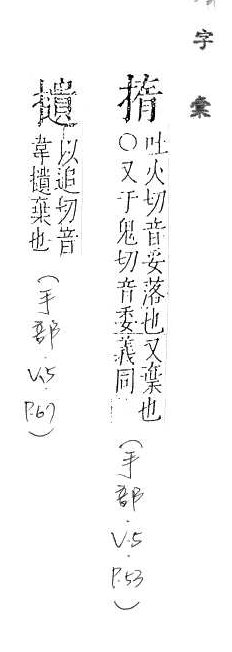 字彙
吐火切音妥落也又棄也
○又于鬼切音委義同
(手部.V.5.P.53)
撌
以追切音
韋撌棄也
(手部.V.5.P.67)